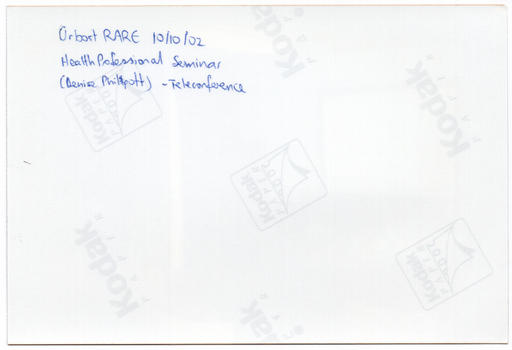 Orbost RARE 10/10/02
Health Professional Seminar
(Denise Phillpott) - Teleconference
Kodak
Kodak
Kodak
PAPER
Kodak
PAPER
Kodak
Kodak
PAPER
Kodak